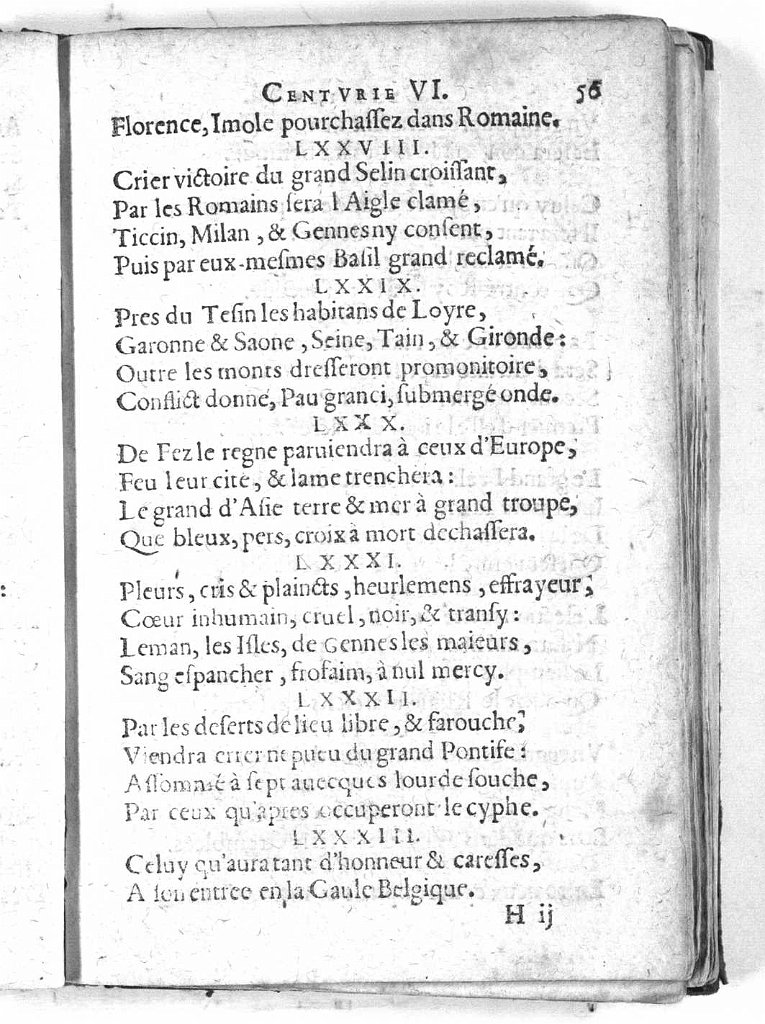 CENTVRIE VI. 56
Florence, Imole pourchaſſez dans Romaine.
LXXVIII.
Crier victoire du grand Selin croiſſant,
Par les Romains ſera l Aigle clamé,
Ticcin, Milan, & Gennes ny conſent,
Puis par eux-meſmes Baſil grand reclamé.
LXXIX.
Pres du Teſin les habitans de Loyre,
Garonne & Saone, Seine, Tain, & Gironde:
Outre les monts dreſſeront promonitoire,
Conflict donné, Pau granci, ſubmergé onde.
LXXX.
De Fez le regne paruiendra à ceux d'Europe,
Feu leur cité, & lame trenchera:
Le grand d'Aſie terre & mer à grand troupe,
Que bleux, pers, croix à mort dechaſſera.
LXXXI.
Pleurs, cris & plaincts, heurlemens, effrayeur,
Cœur inhumain, cruel, noir, & tranſy:
Leman, les Iſles, de Gennes les maieurs,
Sang eſpancher, frofaim, à nul mercy.
LXXXII.
Par les deſerts de lieu libre, & farouche,
Viendra errer nepueu du grand Pontife:
Aſſommé à ſept auecques lourde ſouche,
Par ceux qu'apres occuperont le cyphe.
LXXXIII.
Celuy qu'aura tant d'honneur & careſſes,
A ſon entree en la Gaule Belgique.
H ij